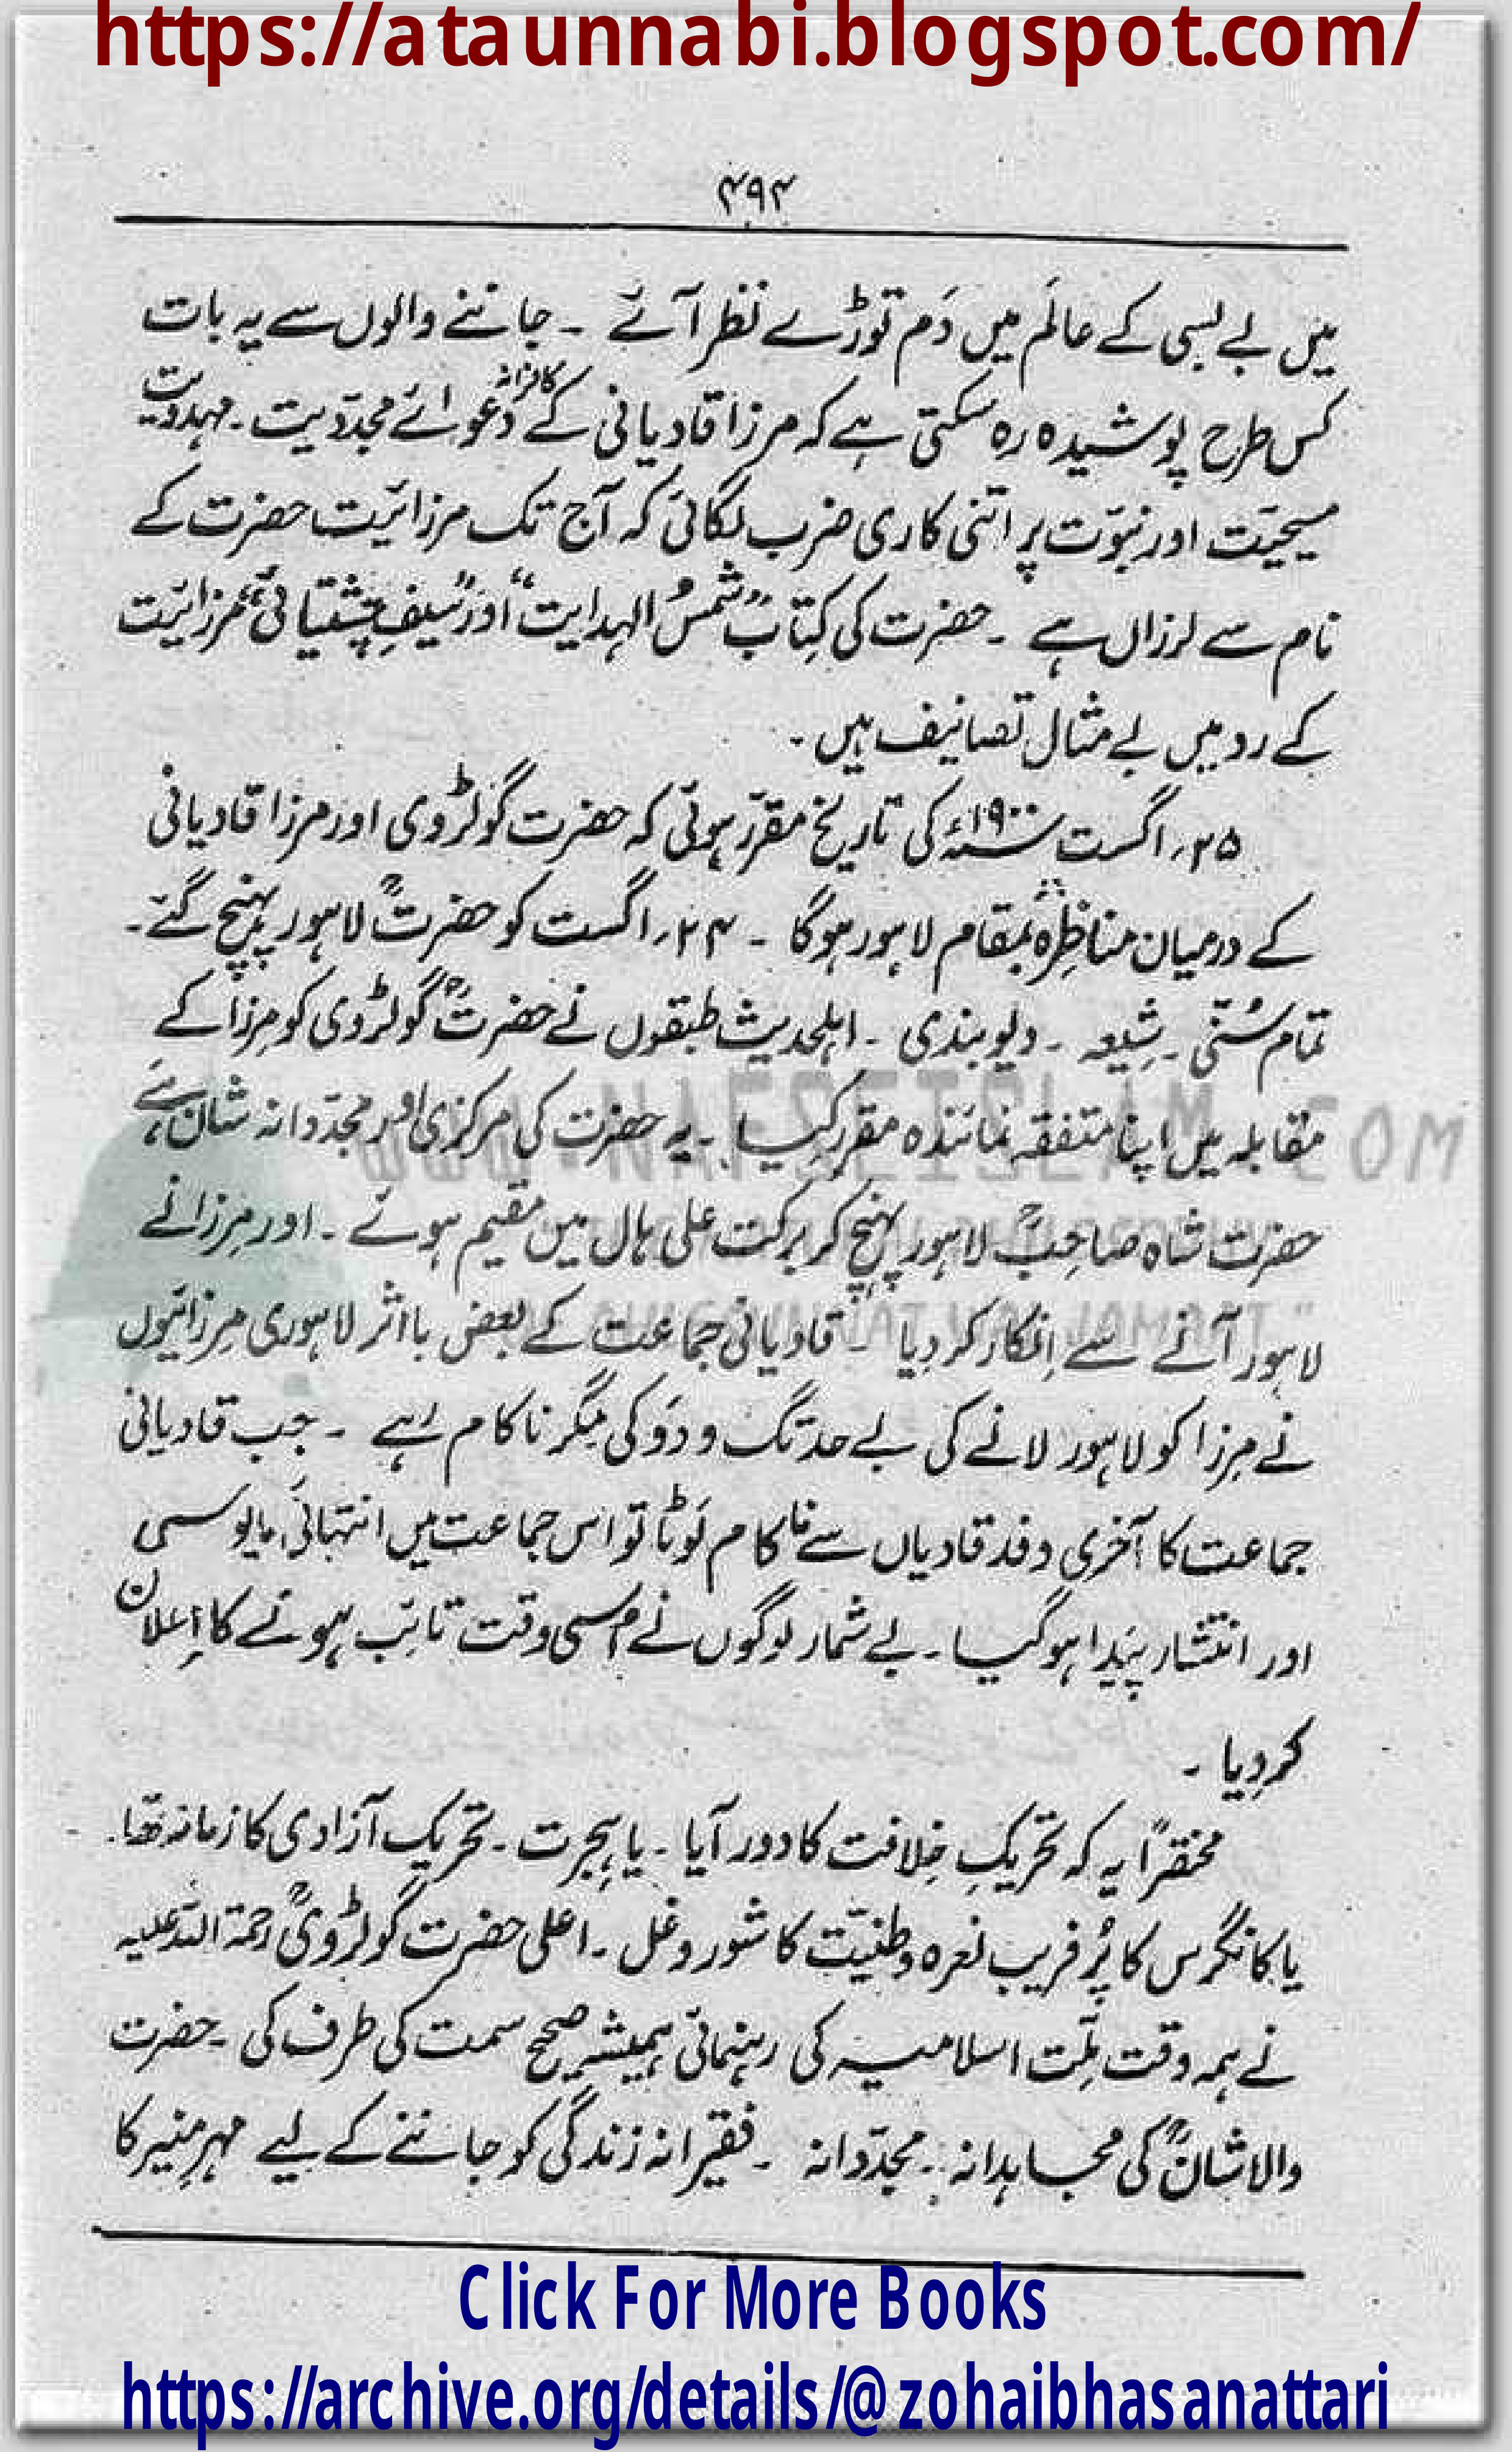 https://ataunnabi.blogspot.com/
۴۹۴
میں بے بسی کے عالَم میں دَم توڑے نظر آئے ۔ جاننے والوں سے یہ بات
کس طرح پوشیدہ رہ سکتی ہے کہ مرزا قادیانی کے کافرانہ دعوائے مجدّدیت ۔ مہدویت
مسیحیّت اور نبوّت پر اتنی کاری ضرب لگائی کہ آج تک مرزائیت حضرت کے
نام سے لرزاں ہے ۔ حضرت کی کتاب "شمسُ الہدایت" اور "سیفِ چشتیائی" مرزائیت
کے رد میں بے مثال تصانیف ہیں ۔
۲۵؍ اگست ۱۹۰۰ء کی تاریخ مقرّر ہوئی کہ حضرت گولڑوی اور مرزا قادیانی
کے درمیان مناظِرہ بمقام لاہور ہوگا ۔ ۲۴؍ اگست کو حضرتؒ لاہور پہنچ گئے ۔
تمام سُنّی ۔ شِیعہ ۔ دیوبندی ۔ اہلحدیث طبقوں نے حضرتؒ گولڑوی کو مِرزا کے
مقابلہ میں اپنا متفقہ نمائندہ مقرر کیا ۔ یہ حضرت کی مرکزی اور مجدّدانہ شان ہے
حضرت شاہ صاحِبؒ لاہور پہنچ کر برکت علی ہال میں مقیم ہوئے ۔ اور مِرزا نے
لاہور آنے سے اِنکار کر دِیا ۔ قادیانی جماعت کے بعض بااثر لاہوری مِرزائیوں
نے مِرزا کو لاہور لانے کی بے حد تگ و دَو کی مگر ناکام رہے ۔ جب قادیانی
جماعت کا آخری وفد قادیاں سے ناکام لَوٹا تو اس جماعت میں انتہائی مایوسی
اور انتشار پَیدا ہو گیا ۔ بے شمار لوگوں نے اُسی وقت تائِب ہونے کا اِعلان
کر دِیا ۔
مختصراً یہ کہ تحریکِ خِلافت کا دور آیا ۔ یا ہِجرت ۔ تحریک آزادی کا زمانہ تھا ۔
یا کانگرس کا پُر فریب نعرہ وطنیّت کا شور و غل ۔ اعلی حضرت گولڑویؒ رحمۃ اللہ علیہ
نے ہمہ وقت مِلّت اسلامیہ کی رہنمائی ہمیشہ صحیح سمت کی طرف کی ۔ حضرت
والا شانؒ کی مجاہدانہ ۔ مجدّدانہ ۔ فقیرانہ زندگی کو جاننے کے لیے مہرِ منِیر کا
WWW.NAFSEISLAM.COM
Click For More Books
https://archive.org/details/@zohaibhasanattari